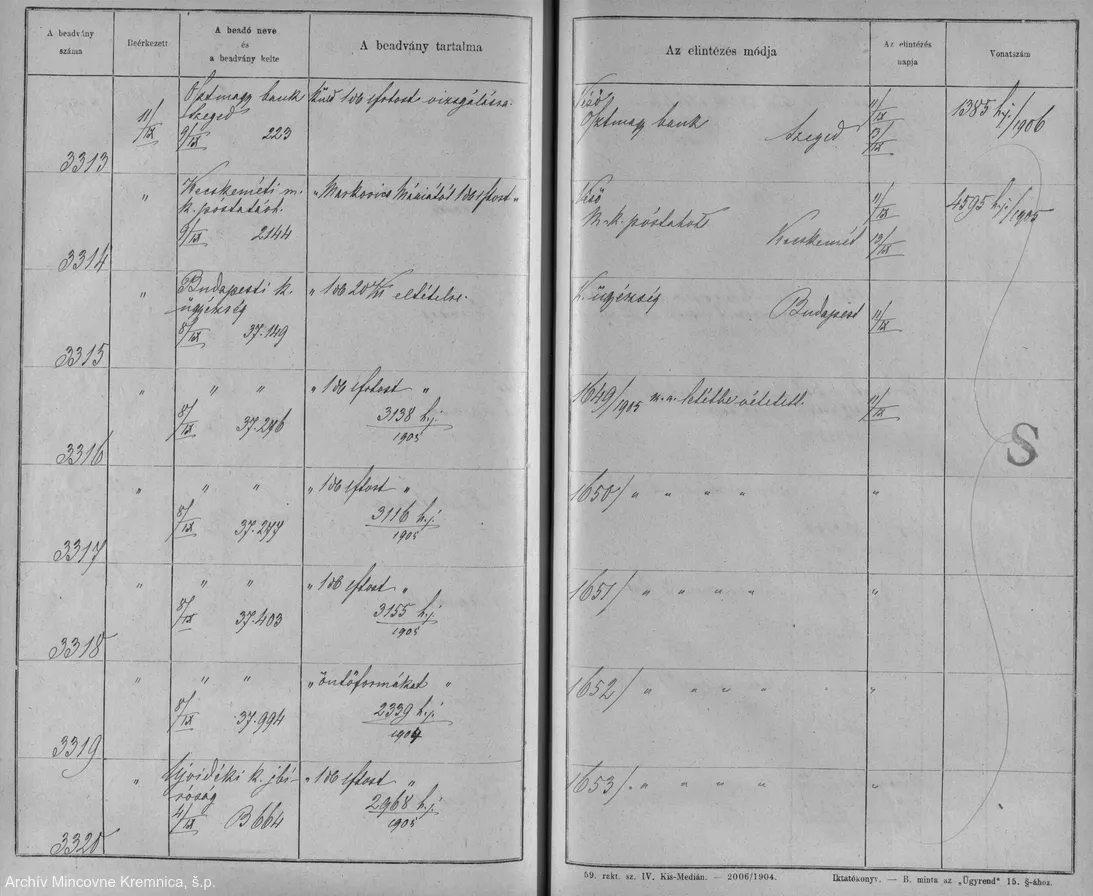 A beadvány száma
Beérkezett
A beadó neve és a beadvány kelte
A beadvány tartalma
Az elintézés módja
Az elintézés napja
Vonatszám
3313
11/IX
Osztmagy bank
Szeged
9/IX 223
küld 1 db
vizsgálásra.
Osztmagy bank
Szeged
11/IX
13/IX
1385 h.j./1906
3314
"
Kecskeméti m.
k. póstatár h.
9/IX 2144
" Markovics Máriától 1 db "
m. k. póstahiv
Kecskemét
11/IX
13/IX
4595 h.j./1905
3315
"
Budapesti k.
ügyészség
8/IX 37.149
" 1 db 20 eltételre.
K. ügyészség
Budapest
11/IX
3316
" " "
8/IX 37.276
" 1 db "
3138 h.j.
1905
1649/1905 letétbe vétetett.
11/IX
3317
" " "
8/IX 37.277
" 1 db "
3116 h.j.
1905
1650/ " " " "
"
3318
" " "
8/IX 37.403
" 1 db "
3155 h.j.
1905
1651/ " " " "
"
3319
" " "
8/IX 37.994
" öntőformákat "
2339 h.j.
1904
1652/ " " " "
"
3320
"
Ujvidéki k. jbí-
róság
4/IX B 664
" 1 db "
2968 h.j.
1905
1653/. " " " "
"
S
59. rakt. sz. IV. Kis-Medián. — 2006/1904.
Iktatókönyv. — B. minta az „Ügyrend" 15. §-ához.
Archív Mincovne Kremnica, š.p.